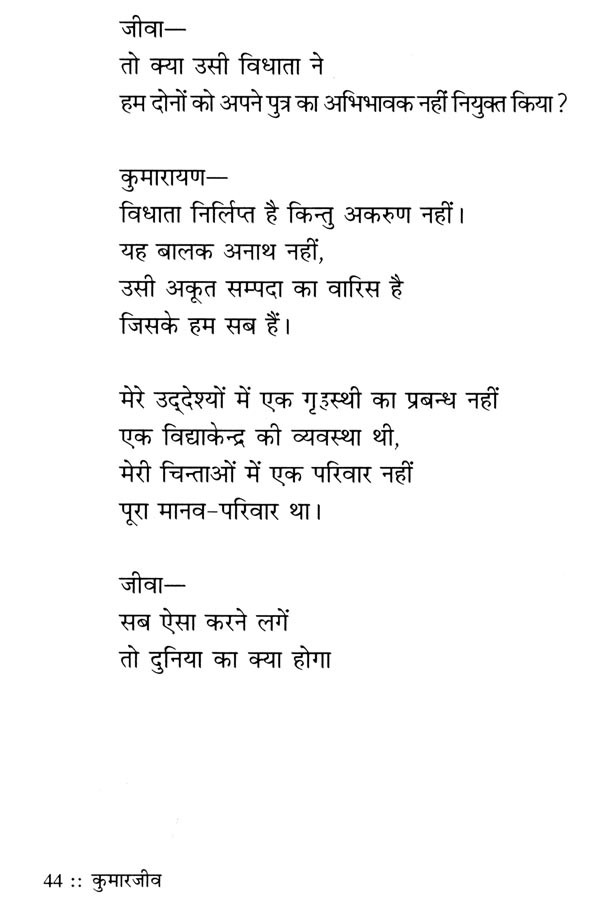 जीवा—
तो क्या उसी विधाता ने
हम दोनों को अपने पुत्र का अभिभावक नहीं नियुक्त किया ?
कुमारायण—
विधाता निर्लिप्त है किन्तु अकरुण नहीं।
यह बालक अनाथ नहीं,
उसी अकूत सम्पदा का वारिस है
जिसके हम सब हैं।
मेरे उद्देश्यों में एक गृहस्थी का प्रबन्ध नहीं
एक विद्याकेन्द्र की व्यवस्था थी,
मेरी चिन्ताओं में एक परिवार नहीं
पूरा मानव-परिवार था।
जीवा—
सब ऐसा करने लगें
तो दुनिया का क्या होगा
44 :: कुमारजीव